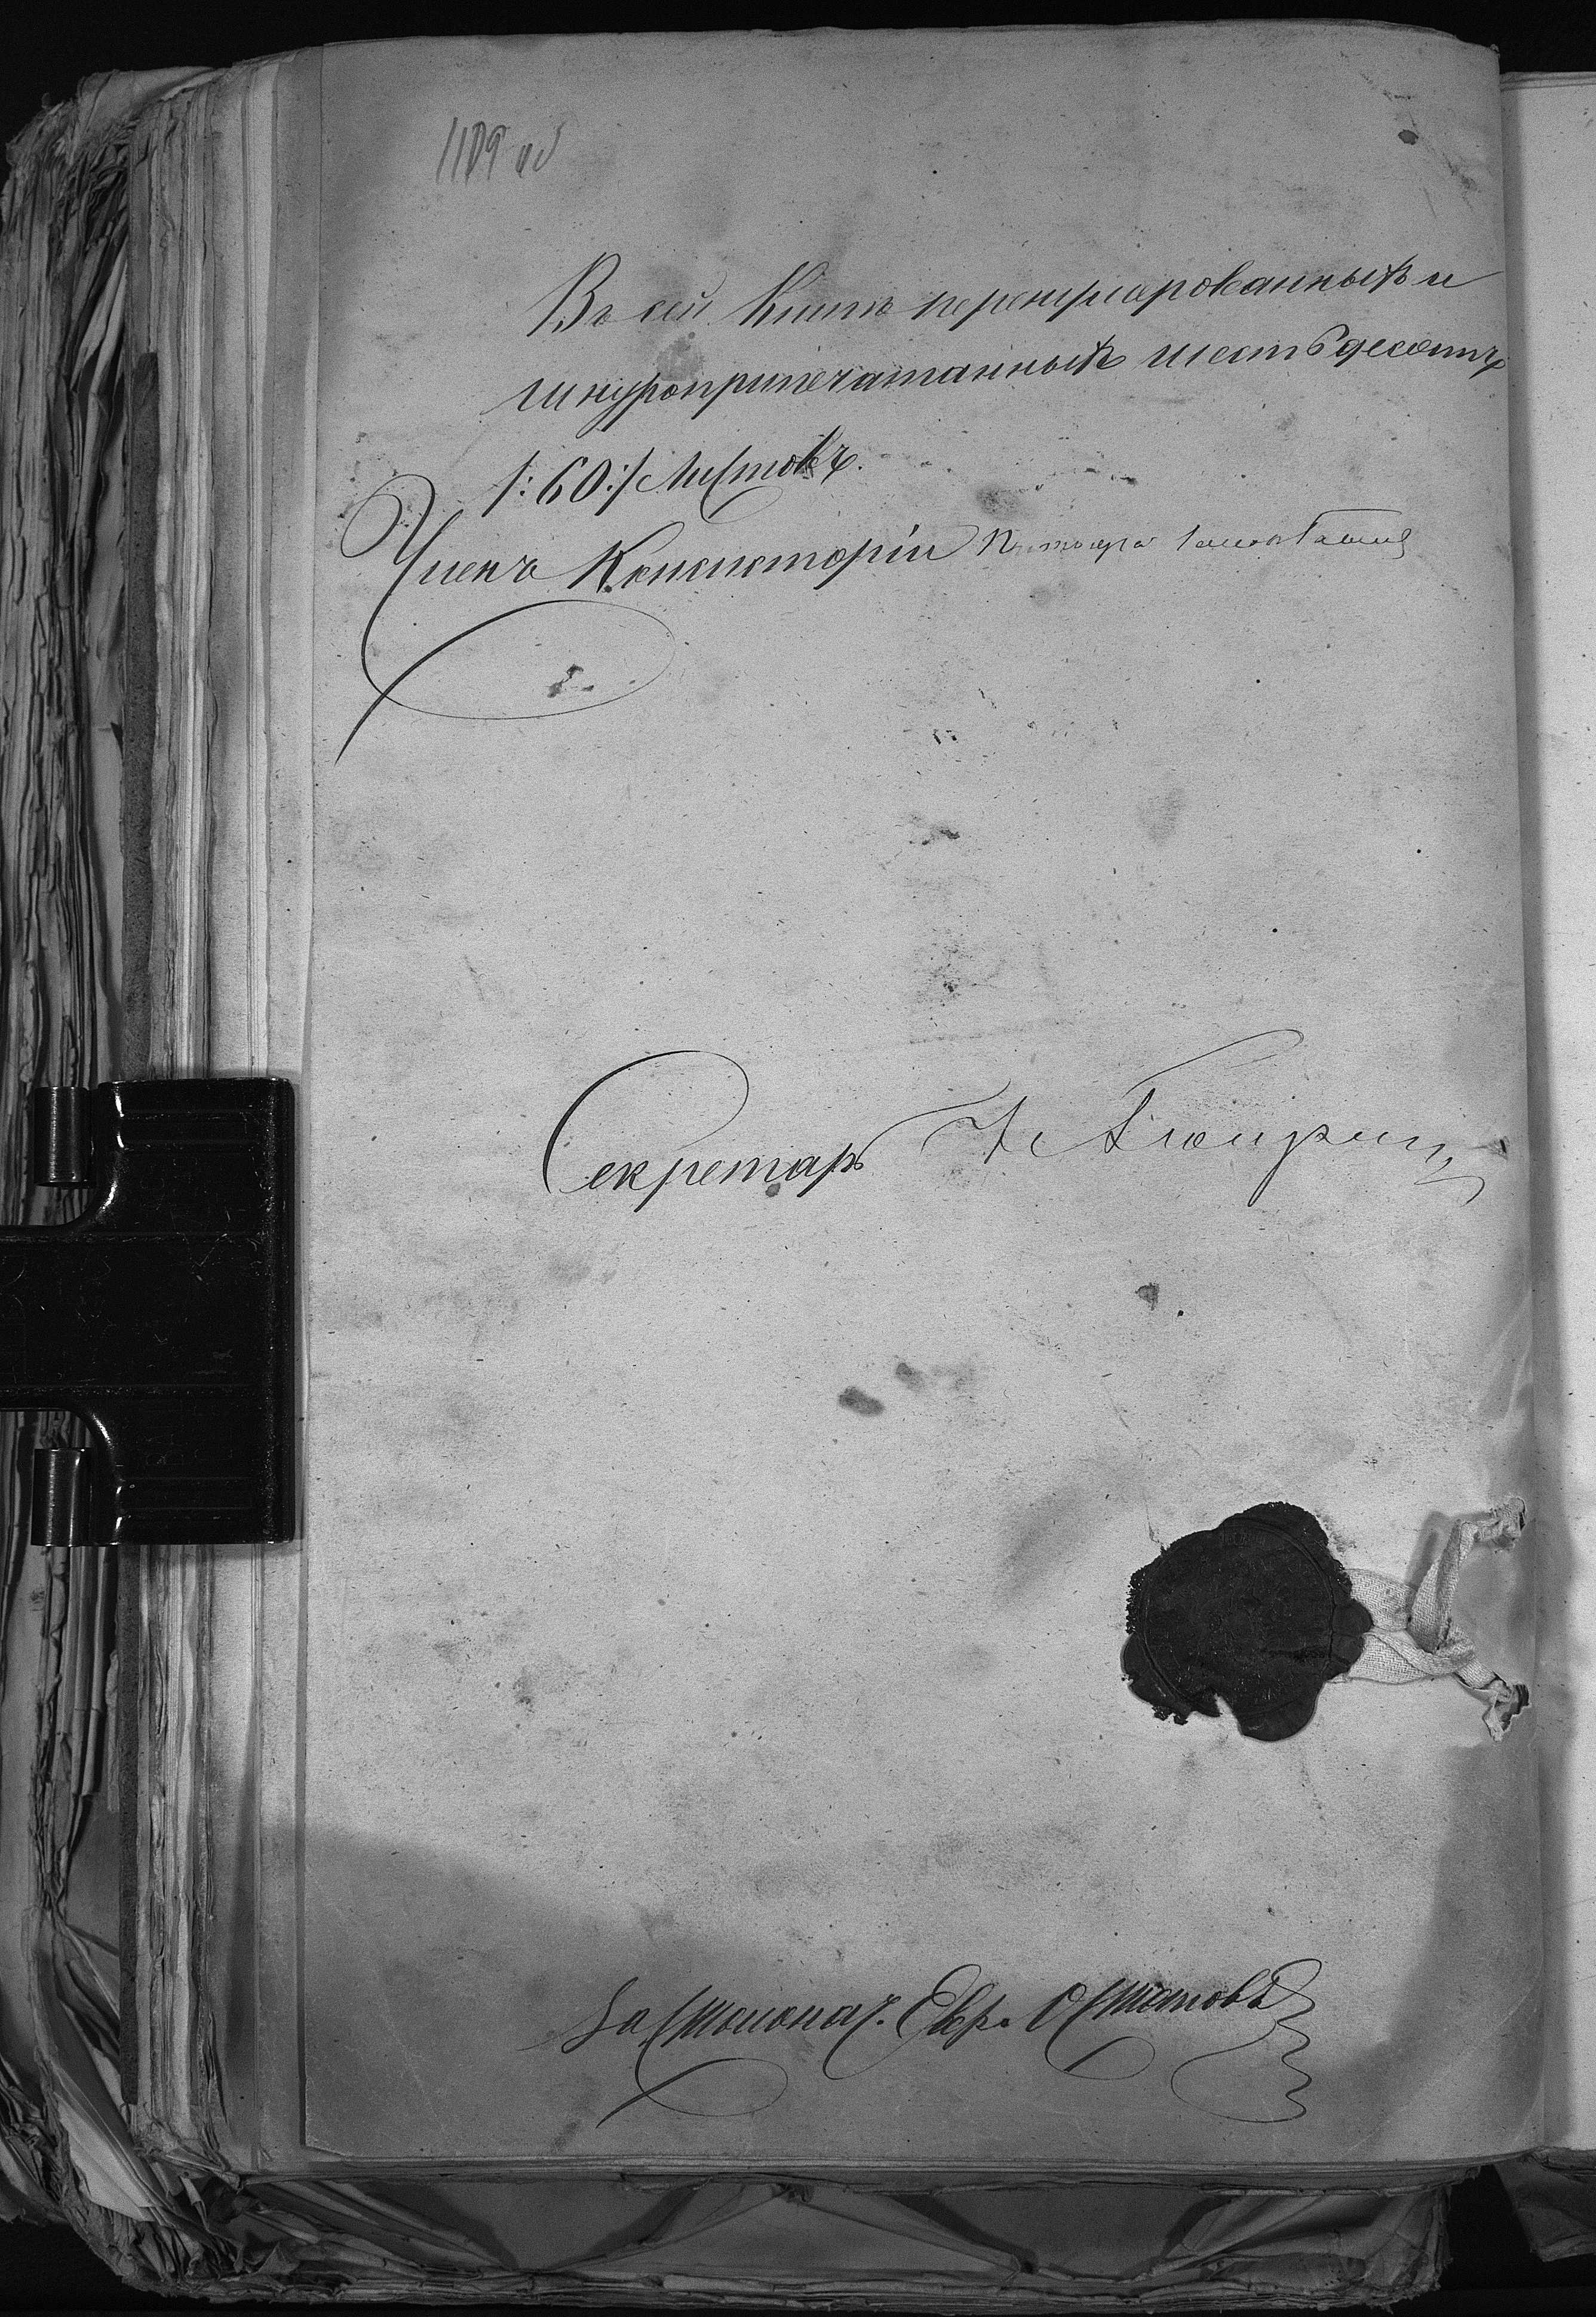 1109 об
Въ сей Книгѣ перенумерованныхъ и
шнуроприпечатанныхъ шестьдесятъ
/:60:/ листовъ.
Членъ Консисторіи
Секретарь
За Столонач. Евр. Остатовъ